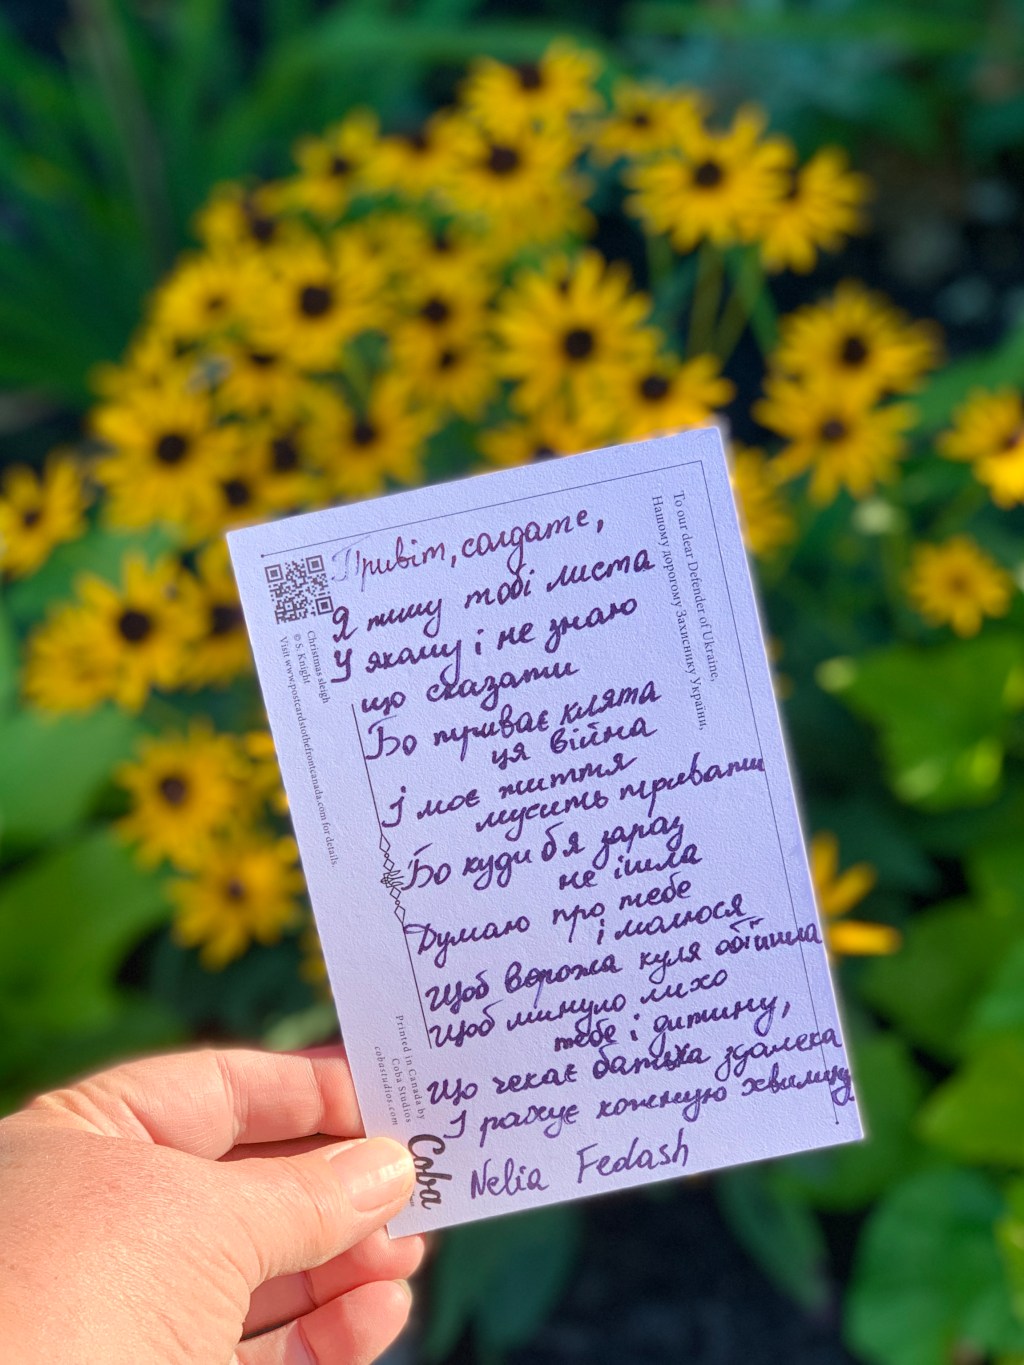 To our dear Defender of Ukraine,
Нашому дорогому Захиснику України,
Привіт, солдате,
Я пишу тобі листа
У якому і не знаю
що сказати
Бо триває клята
ця війна
І моє життя
мусить тривати
Бо куди б я зараз
не ішла
Думаю про тебе
і молюся
Щоб ворожа куля обійшла
Щоб минуло лихо
тебе і дитину,
Що чекає батька здалека
І рахує кожную хвилину.
Nelia Fedash
Christmas sleigh
© S. Knight
Visit www.postcardstothefrontcanada.com for details.
Printed in Canada by
Coba Studios
cobastudios.com
Coba